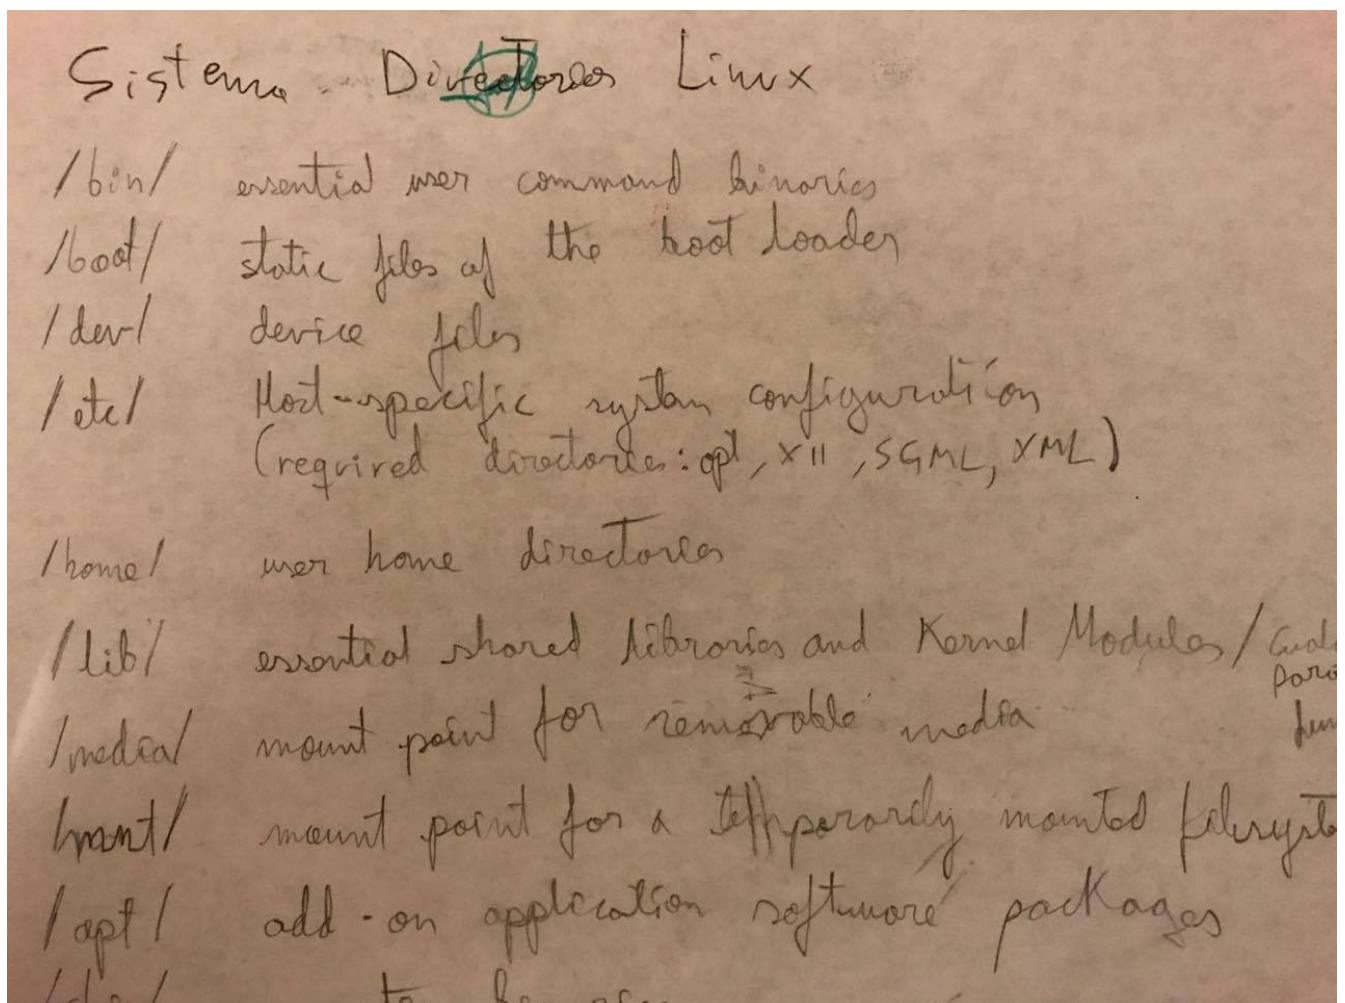 Sistema Directories Linux
/bin/ essential user command binaries
/boot/ static files of the boot loader
/dev/ device files
/etc/ Host-specific system configuration
(required directories: opt, X11, SGML, XML)
/home/ user home directories
/lib/ essential shared libraries and Kernel Modules /
/media/ mount point for removable media
/mnt/ mount point for a temporarily mounted filesyste
/opt/ add-on application software packages